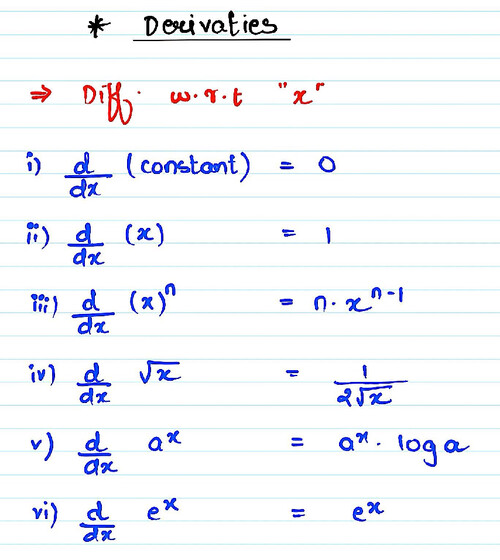 * Derivaties
⇒ Diff. w.r.t "x"
i) d/dx (constant) = 0
ii) d/dx (x) = 1
iii) d/dx (x)ⁿ = n·xⁿ⁻¹
iv) d/dx √x = 1/2√x
v) d/dx aˣ = aˣ· log a
vi) d/dx eˣ = eˣ